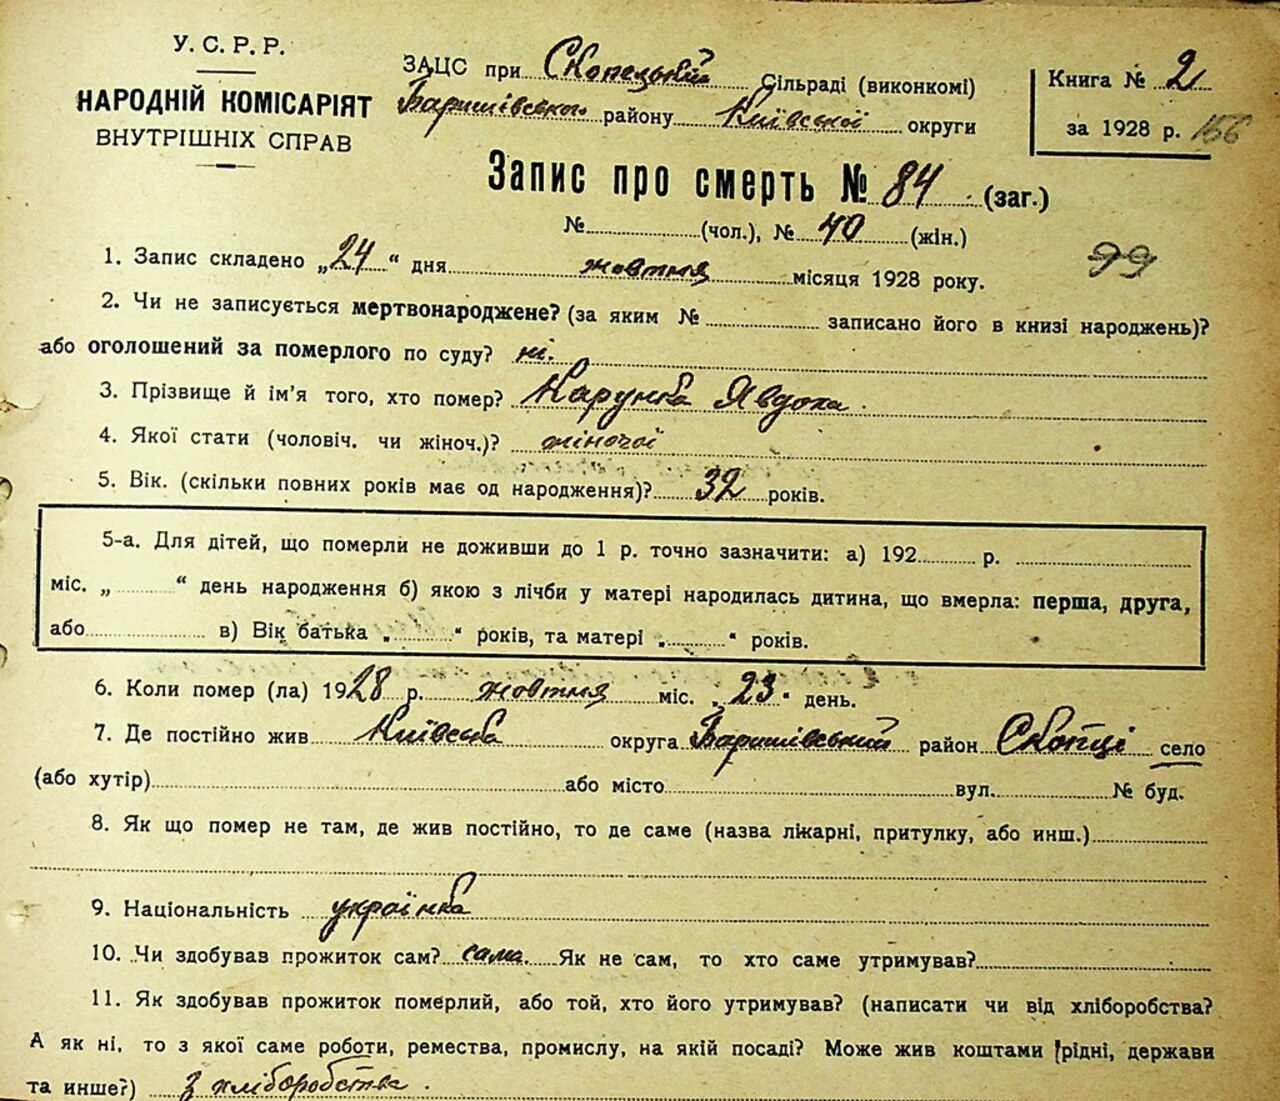 У. С. Р. Р.
НАРОДНІЙ КОМІСАРІЯТ
ВНУТРІШНІХ СПРАВ
ЗАЦС при Скопецькій Сільраді (виконкомі)
Баришівського району Київської округи
Книга № 2
за 1928 р. 156
Запис про смерть № 84 (заг.)
№ (чол.), № 40 (жін.)
99
1. Запис складено „24“ дня жовтня місяця 1928 року.
2. Чи не записується мертвонароджене? (за яким № записано його в книзі народжень)?
або оголошений за померлого по суду? ні.
3. Прізвище й ім'я того, хто помер? Карунка Явдоха.
4. Якої стати (чоловіч. чи жіноч.)? жіночої
5. Вік. (скільки повних років має од народження)? 32 років.
5-а. Для дітей, що померли не доживши до 1 р. точно зазначити: а) 192 р.
міс. „ “ день народження б) якою з лічби у матері народилась дитина, що вмерла: перша, друга,
або в) Вік батька „ “ років, та матері „ “ років.
6. Коли помер (ла) 1928 р. жовтня міс. „23" день.
7. Де постійно жив Київська округа Баришівський район Скопці село
(або хутір) або місто вул. № буд.
8. Як що помер не там, де жив постійно, то де саме (назва лікарні, притулку, або инш.)
9. Національність українка
10. Чи здобував прожиток сам? сама. Як не сам, то хто саме утримував?
11. Як здобував прожиток померлий, або той, хто його утримував? (написати чи від хліборобства?
А як ні, то з якої саме роботи, ремества, промислу, на якій посаді? Може жив коштами (рідні, держави
та инше?) З хліборобства.